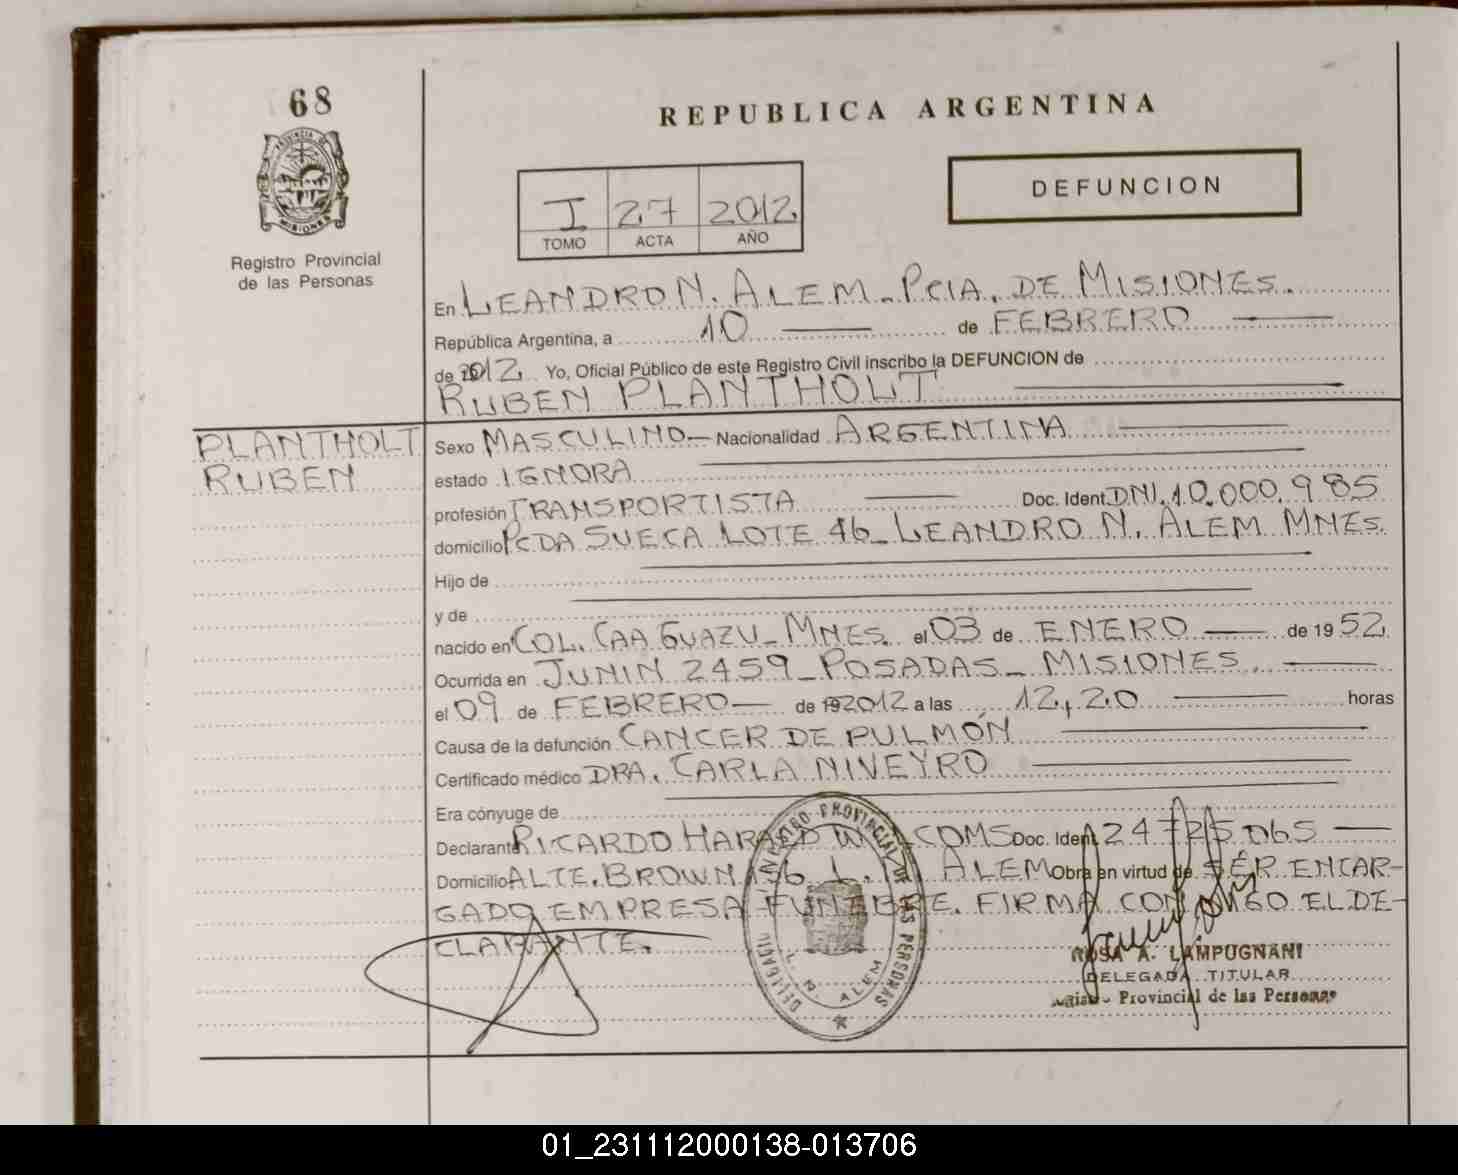 68
REPUBLICA ARGENTINA
PROVINCIA DE MISIONES
Registro Provincial
de las Personas
I 27 2012
TOMO ACTA AÑO
DEFUNCION
En LEANDRO N. ALEM. PCIA. DE MISIONES.
República Argentina, a 10 de FEBRERO
de 2012 Yo, Oficial Público de este Registro Civil inscribo la DEFUNCION de
RUBEN PLANTHOLT
PLANTHOLT
RUBEN
Sexo MASCULINO Nacionalidad ARGENTINA
estado IGNORA
profesión TRANSPORTISTA Doc. Ident. DNI. 10.000.985
domicilio PCDA SUECA LOTE 46_ LEANDRO N. ALEM MNES.
Hijo de
y de
nacido en COL. CAA GUAZU_ MNES. el 03 de ENERO de 1952
Ocurrida en JUNIN 2459_ POSADAS_ MISIONES.
el 09 de FEBRERO de 192012 a las 12,20 horas
Causa de la defunción CANCER DE PULMÓN
Certificado médico DRA. CARLA NIVEYRO
Era cónyuge de
Declarante RICARDO Doc. Ident. 24.725.065
Domicilio ALTE. BROWN ALEM Obra en virtud de SER ENCAR-
GADO EMPRESA FUNEBRE. FIRMA CONMIGO EL DE-
CLARANTE.
REGISTRO PROVINCIAL DE LAS PERSONAS
L. N. ALEM
ROSA A. LAMPUGNANI
DELEGADA TITULAR
Provincial de las Personas
01_231112000138-013706